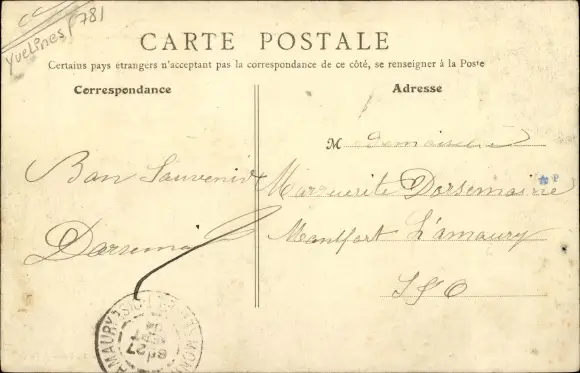 CC
Yvelines (78)
CARTE POSTALE
Certains pays étrangers n'acceptant pas la correspondance de ce côté, se renseigner à la Poste
Correspondance
Adresse
Bon Souvenir
M ademoiselle
Marguerite Dorsemaine
Montfort L'amaury
S & O